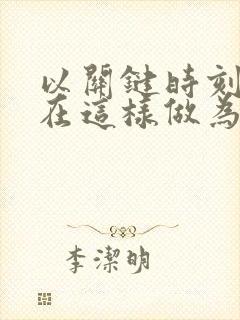 以關鍵時刻
在這樣做為
李潔明